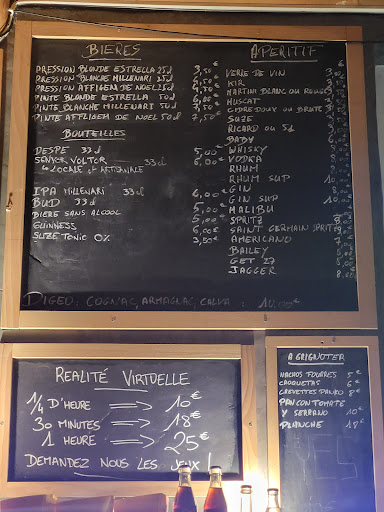 BIERES
PRESSION BLONDE ESTRELLA 25cl 3,50€
PRESSION BLANCHE MILLENARI 25cl
PRESSION AFFIGEM DE NOEL 25cl 4,70€
PINTE BLONDE ESTRELLA 50cl 6,00€
PINTE BLANCHE MILLENARI 50cl 7,50€
PINTE AFFLIGEM DE NOEL 50cl 7,50€
BOUTEILLES
DESPE 33cl 5,00€
VOLTOR 33cl 6,00€
LOCALE et ARTISANALE
IPA MILLENARI 33cl 6,00€
BUD 33cl 5,00€
BIERE SANS ALCOOL
GUINNESS 6,00€
SUZE TONIC 0% 3,50€
APERITIF
VERRE DE VIN
KIR
MARTINI BLANC OU ROUGE
MUSCAT
CIDRE DOUX OU BRUTE
SUZE
RICARD OU 51
BABY
WHISKY
VODKA
RHUM
RHUM SUP
GIN
GIN SUP
MALIBU
SPRITZ
SAINT GERMAIN SPRITZ
AMERICANO
BAILEY
GET 27
JAGGER
DIGEO: COGNAC, ARMAGNAC, CALVA : 10,00€
REALITÉ VIRTUELLE
1/4 D'HEURE ⟹ 10€
30 MINUTES ⟹ 18€
1 HEURE ⟹ 25€
DEMANDEZ NOUS LES JEUX !
A GRIGNOTER
NACHOS FOURRES 5€
CROQUETAS 6€
CREVETTES PANKO 8€
PAN CON TOMATE
Y SERRANO 10€
PLANCHE